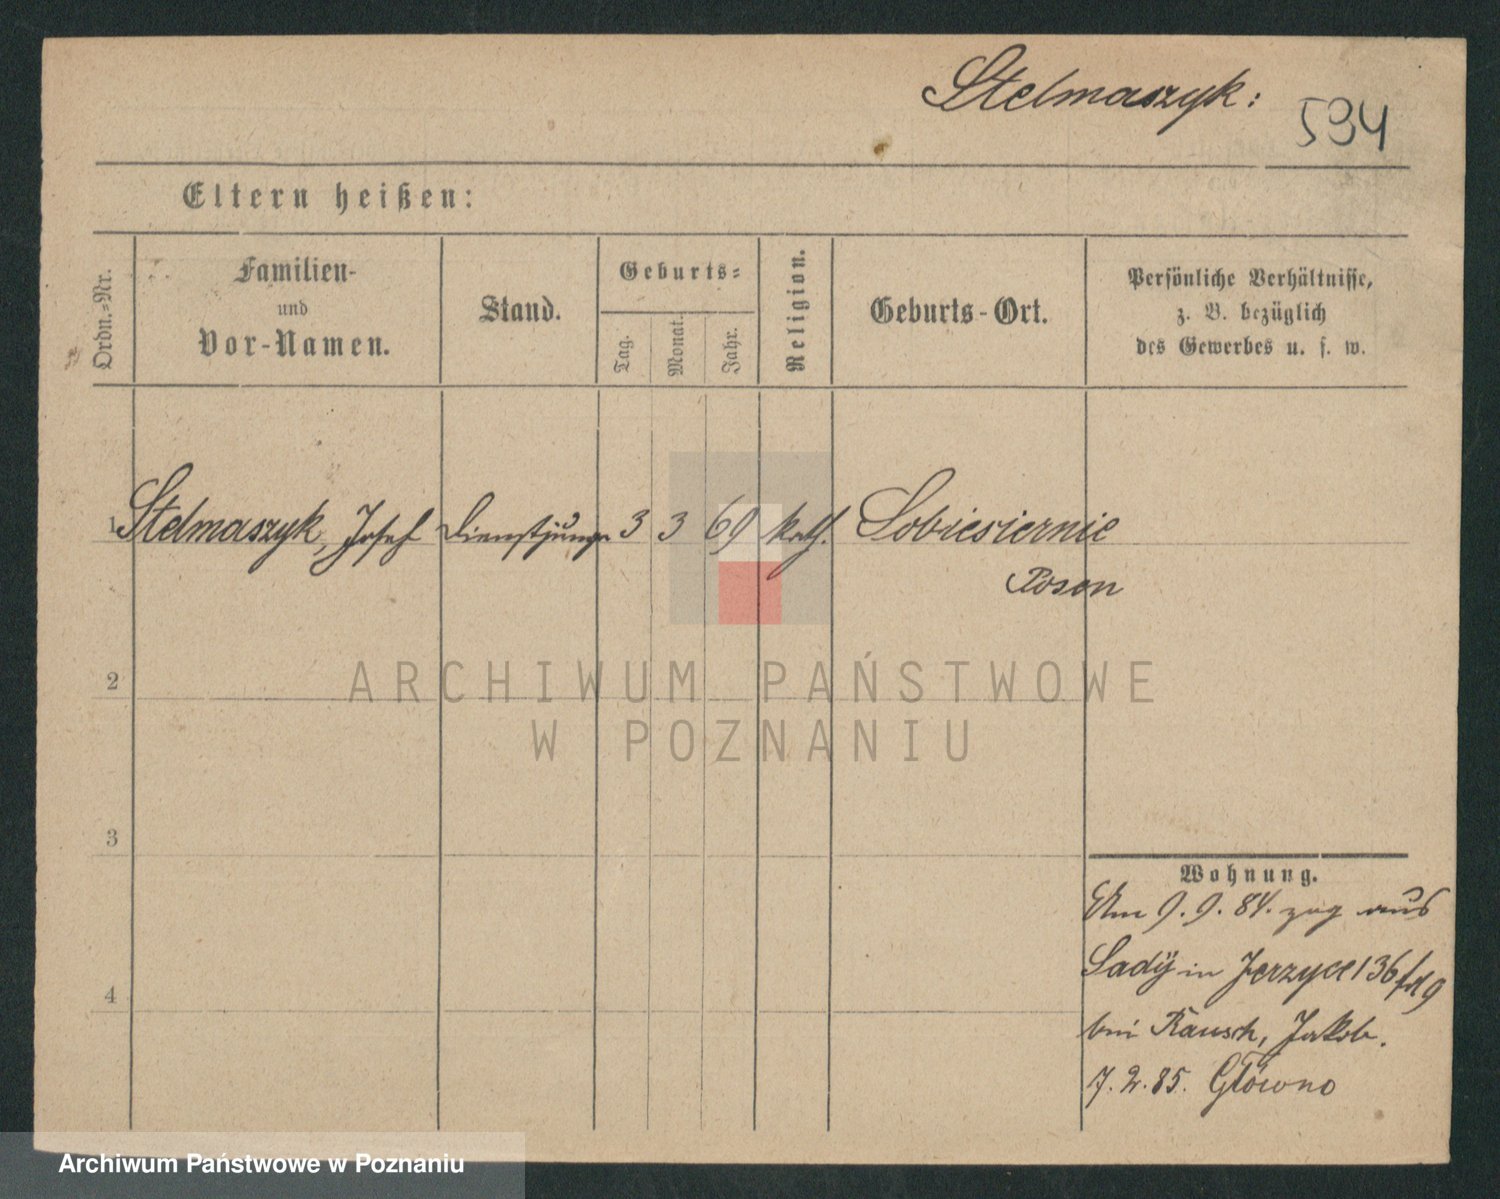 Stelmaszyk:
594
Eltern heißen:
Ordn.-Nr.
Familien-
und
Vor-Namen.
Stand.
Geburts-
Tag.
Monat.
Jahr.
Religion.
Geburts-Ort.
Persönliche Verhältnisse,
z. B. bezüglich
des Gewerbes u. s. w.
1 Stelmaszyk, Josef Dienstjunge 3 3 69 kath. Sobiesiernie
Posen
2
3
4
Wohnung.
Am 9.9.84. zog aus
Sady in Jerzyce 136
bei Rausch, Jakob.
7.2.85. Główno
ARCHIWUM PAŃSTWOWE
W POZNANIU
Archiwum Państwowe w Poznaniu